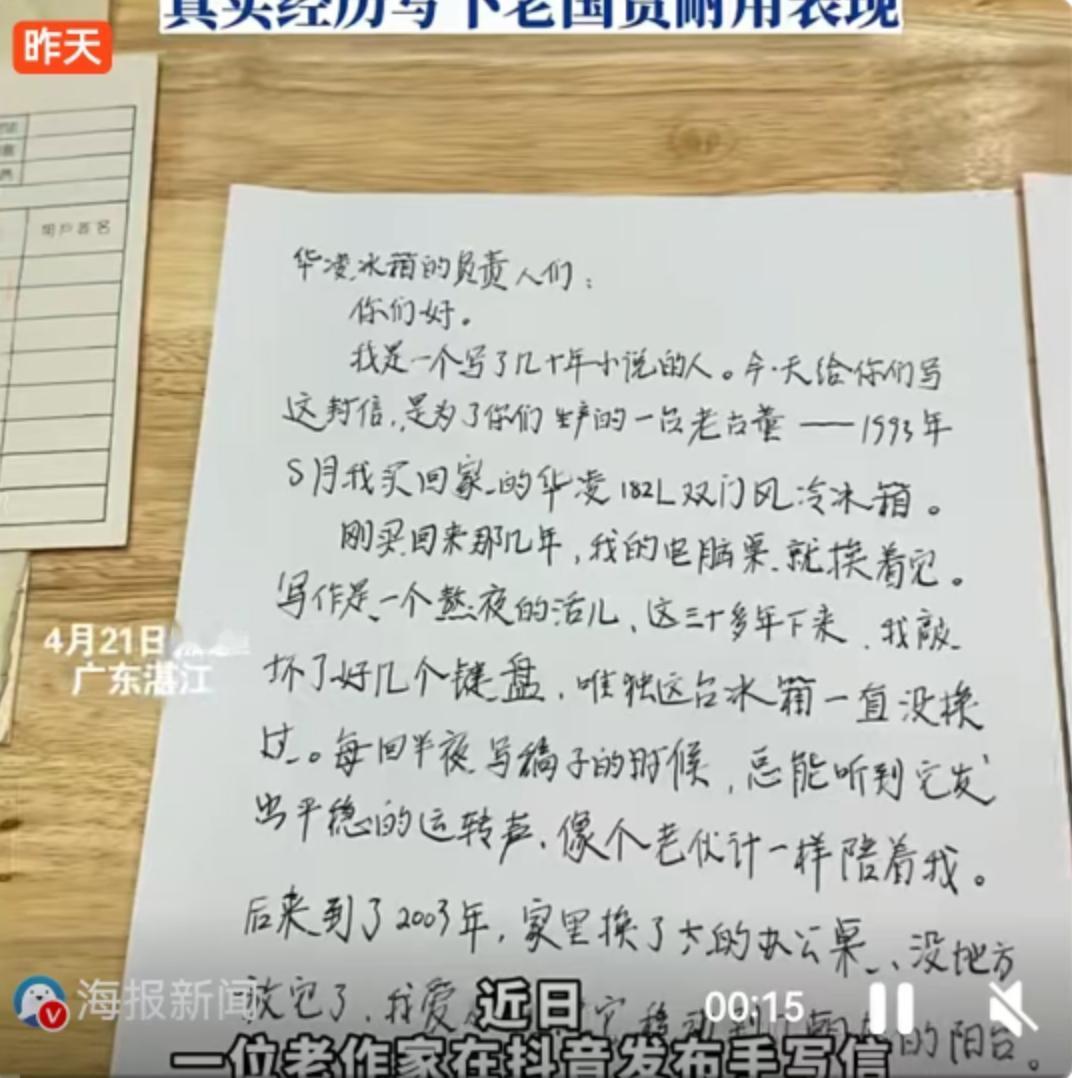 真实经历写下老国货耐用表现
昨天
用户签名
华凌冰箱的负责人们：
你们好。
我是一个写了几十年小说的人。今天给你们写
这封信，是为了你们生产的一台老古董——1993年
5月我买回家的华凌182L双门风冷冰箱。
刚买回来那几年，我的电脑桌就挨着它。
写作是一个熬夜的活儿、这三十多年下来，我敲
坏了好几个键盘，唯独这台冰箱一直没换
过。每回半夜写稿子的时候，总能听到它发
出平稳的运转声、像个老伙计一样陪着我。
后来到了2003年，家里换了大的办公桌、没地方
放它了，我爱
的阳台。
4月21日
广东湛江
海报新闻
00:15
近日
一位老作家在抖音发布手写信